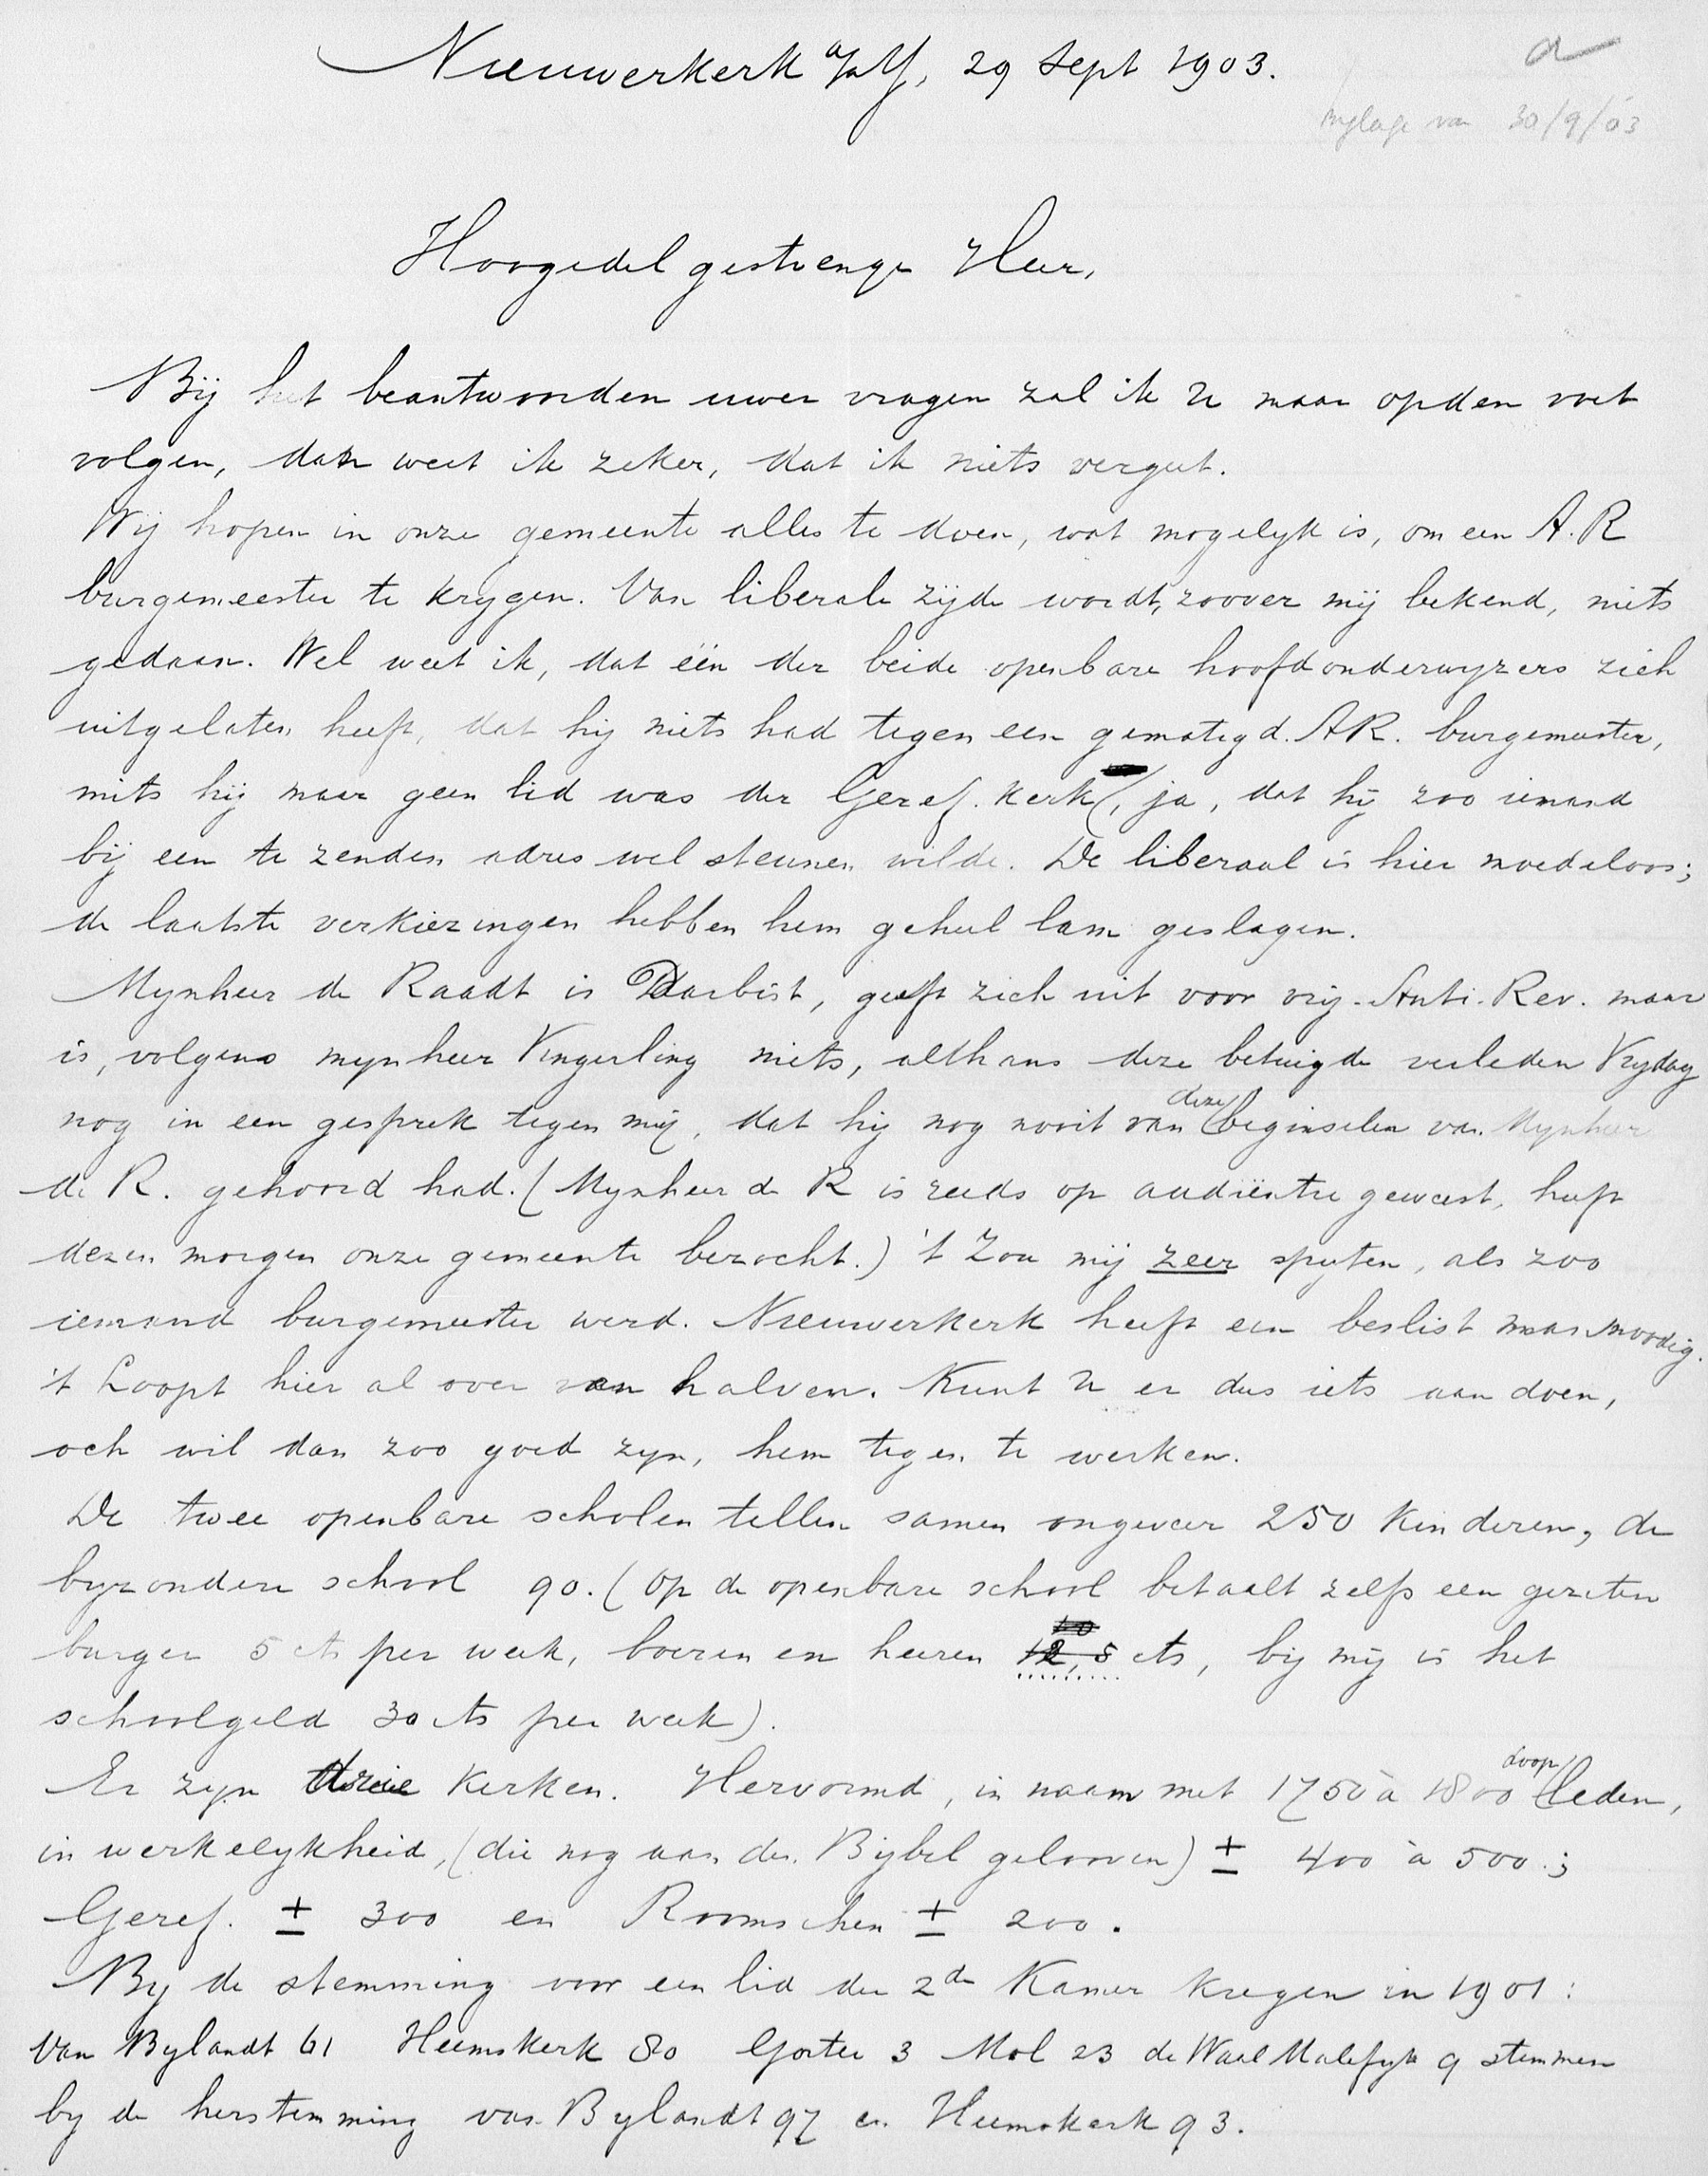 Nieuwerkerk a/d IJ, 29 Sept 1903.
a
bijlage van 30/9/03
Hoogedelgestrenge Heer,
Bij het beantwoorden uwer vragen zal ik U maar op den voet
volgen, dan weet ik zeker, dat ik niets vergeet.
Wij hopen in onze gemeente alles te doen, wat mogelijk is, om een A.R
burgemeester te krijgen. Van liberale zijde wordt, zoover mij bekend, niets
gedaan. Wel weet ik, dat één der beide openbare hoofdonderwijzers zich
uitgelaten heeft, dat hij niets had tegen een gematigd. AR. burgemeester,
mits hij maar geen lid was der Geref. kerk, ja, dat hij zoo iemand
bij een te zenden adres wel steunen wilde. De liberaal is hier moedeloos;
de laatste verkiezingen hebben hem geheel lam geslagen.
Mijnheer de Raadt is Darbist, geeft zich uit voor vrij-Anti-Rev. maar
is, volgens mijnheer Vingerling niets, althans deze betuigde verleden Vrijdag
nog in een gesprek tegen mij, dat hij nog nooit van deze beginselen van Mijnheer
de R. gehoord had. (Mijnheer de R is reeds op audiëntie geweest, heeft
dezen morgen onze gemeente bezocht.) 't Zou mij zeer spijten, als zoo
iemand burgemeester werd. Nieuwerkerk heeft een beslist man noodig.
't Loopt hier al over van halven. Kunt U er dus iets aan doen,
och wil dan zoo goed zijn, hem tegen te werken.
De twee openbare scholen tellen samen ongeveer 250 kinderen, de
bijzondere school 90. (op de openbare school betaalt zelfs een gezeten
burger 5 cts per week, boeren en heeren 12,5 cts, bij mij is het
schoolgeld 30 cts per week).
Er zijn drie kerken. Hervormd, in naam met 1750 à 1800 doopleden,
in werkelijkheid, (die nog aan den Bijbel gelooven) ± 400 à 500.;
Geref. ± 300 en Roomschen ± 200.
Bij de stemming voor een lid der 2de Kamer kregen in 1901:
Van Bylandt 61 Heemskerk 80 Gorter 3 Mol 23 de Waal Malefijt 9 stemmen
bij de herstemming van Bylandt 97 en Heemskerk 93.